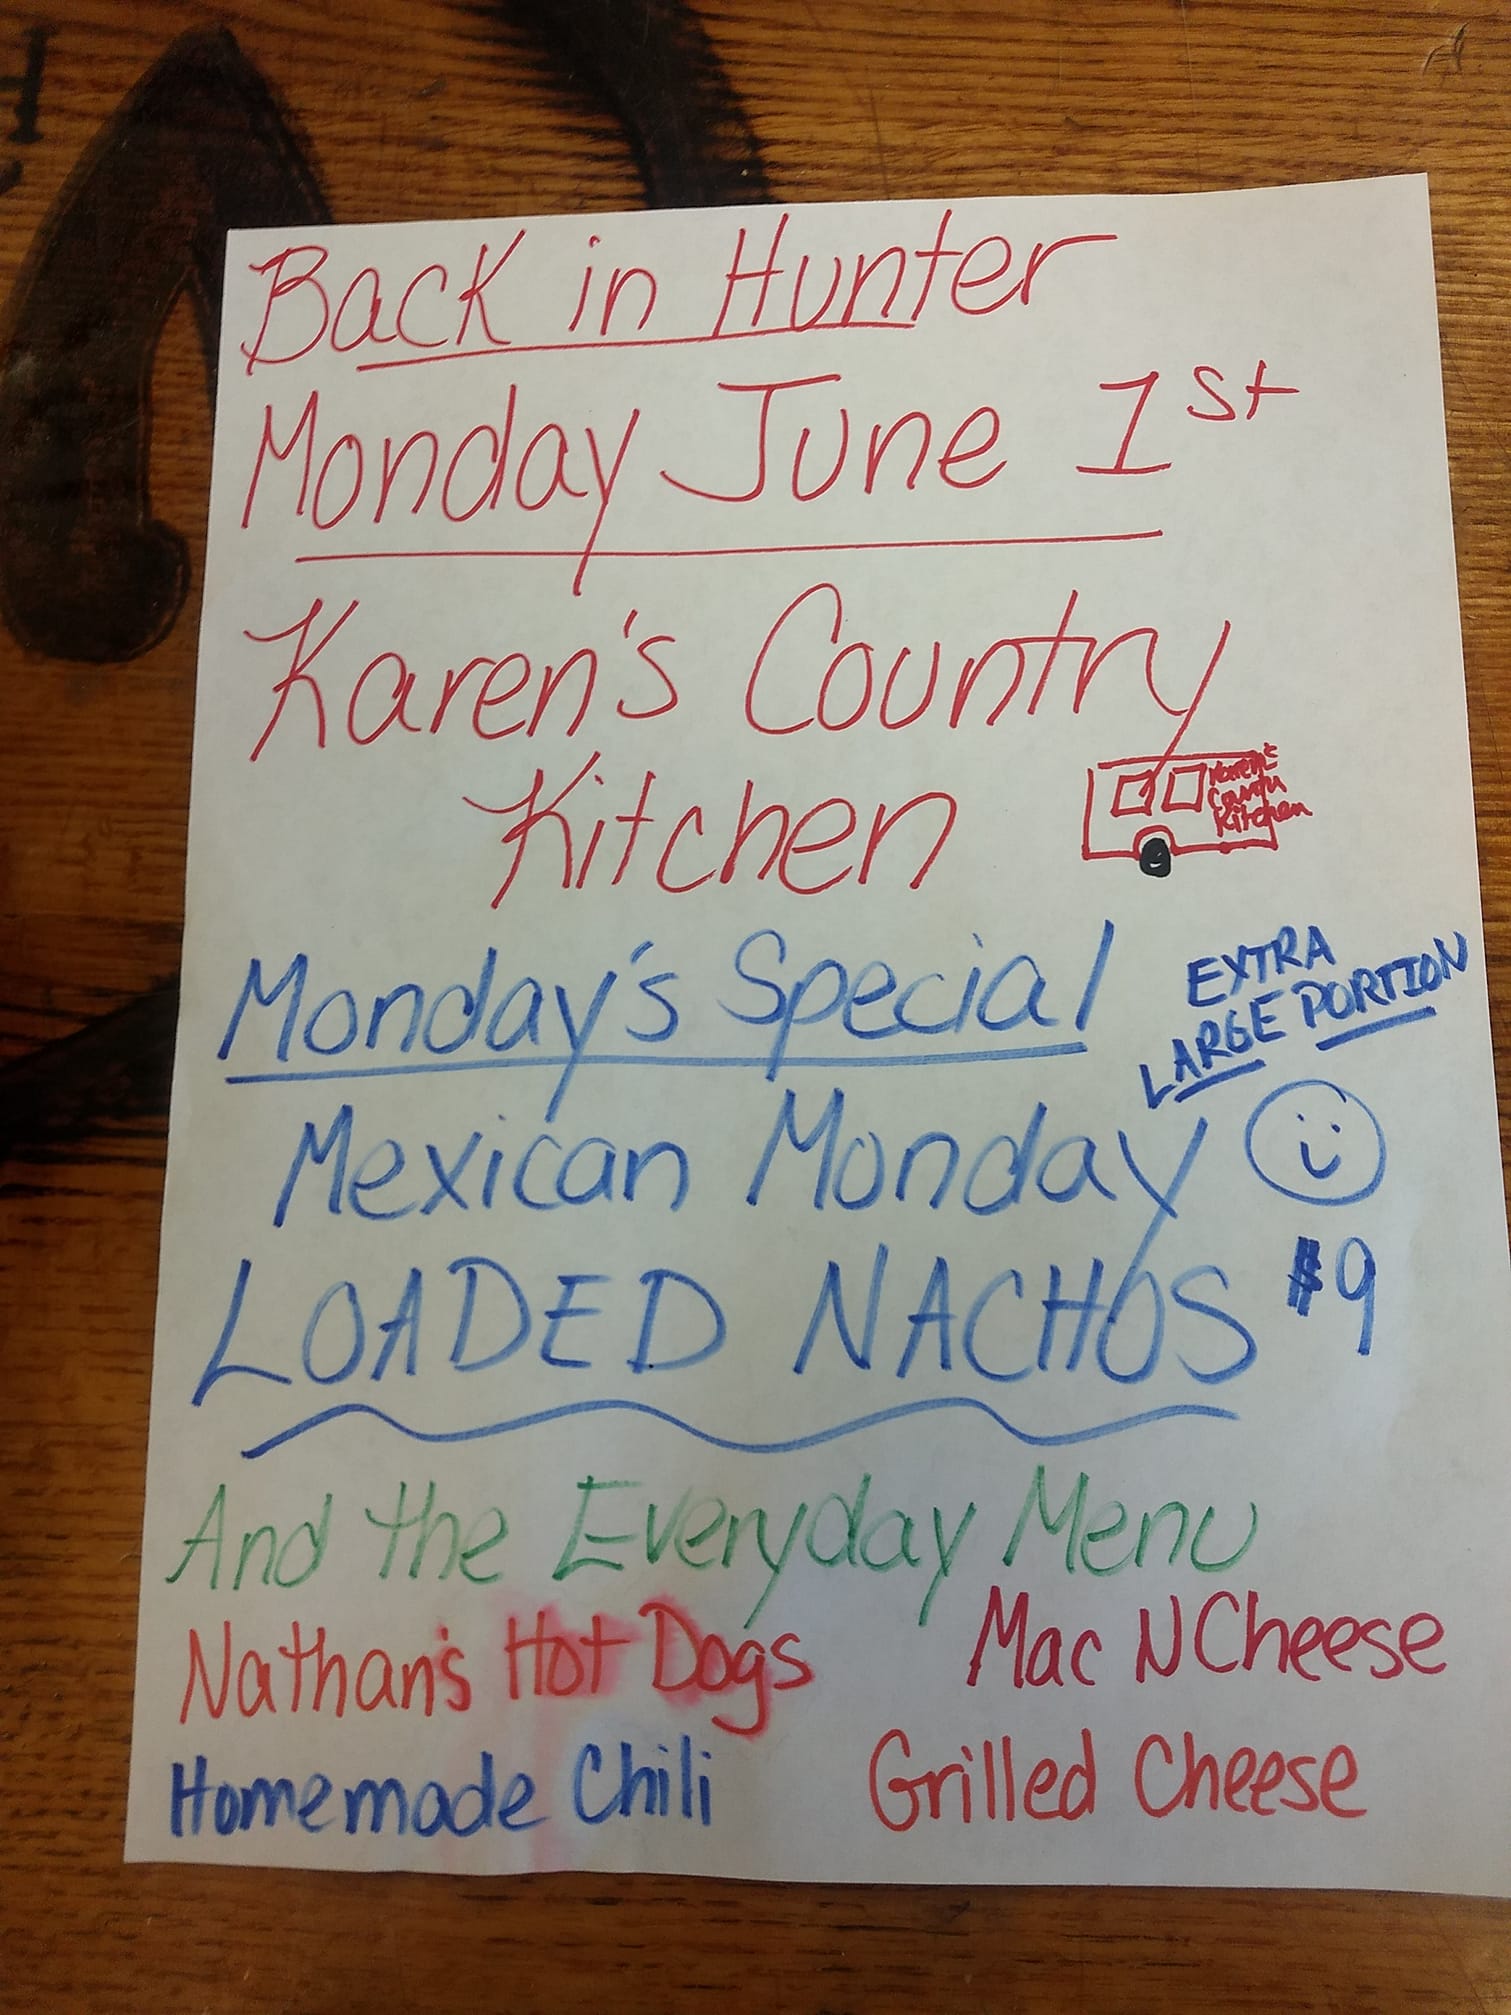 Back in Hunter
Monday June 1st
Karen's Country
Kitchen
Karen's
Country
Kitchen
Monday's Special
EXTRA
LARGE PORTION
Mexican Monday
LOADED NACHOS $9
And the Everyday Menu
Nathan's Hot Dogs
Mac N Cheese
Homemade Chili
Grilled Cheese